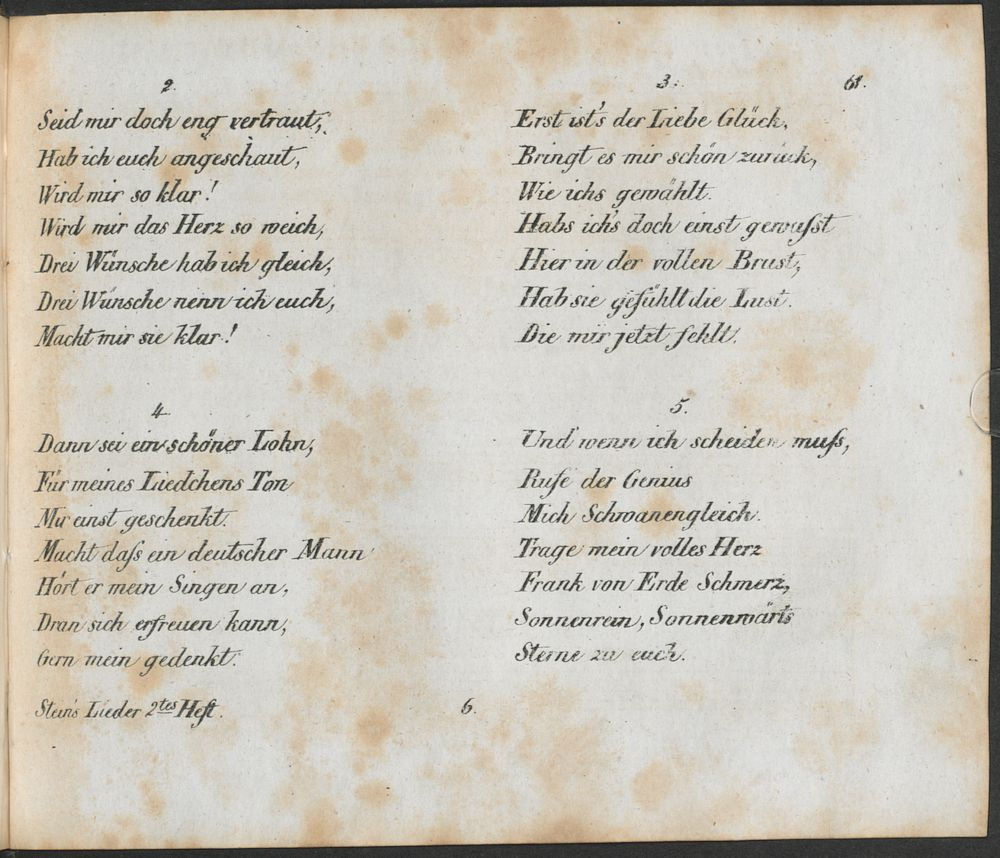 2.
Seid mir doch eng vertraut,
Hab ich euch angeschaut,
Wird mir so klar!
Wird mir das Herz so weich,
Drei Wünsche hab ich gleich,
Drei Wünsche nenn ich euch,
Macht mir sie klar!
3.
61.
Erst ist's der Liebe Glück,
Bringt es mir schön zurück,
Wie ichs gewählt.
Habs ich's doch einst gewusst
Hier in der vollen Brust,
Hab sie gefühllt die Lust.
Die mir jetzt fehlt.
4.
Dann sei ein schöner Lohn,
Für meines Liedchens Ton
Mir einst geschenkt.
Macht dass ein deutscher Mann
Hört er mein Singen an,
Dran sich erfreuen kann,
Gern mein gedenkt.
5.
Und wenn ich scheiden muss,
Rufe der Genius
Mich Schwanengleich.
Trage mein volles Herz
Frank von Erde Schmerz,
Sonnenrein, Sonnenwärts
Sterne zu euch.
Stein's Lieder 2tes Heft.
6.